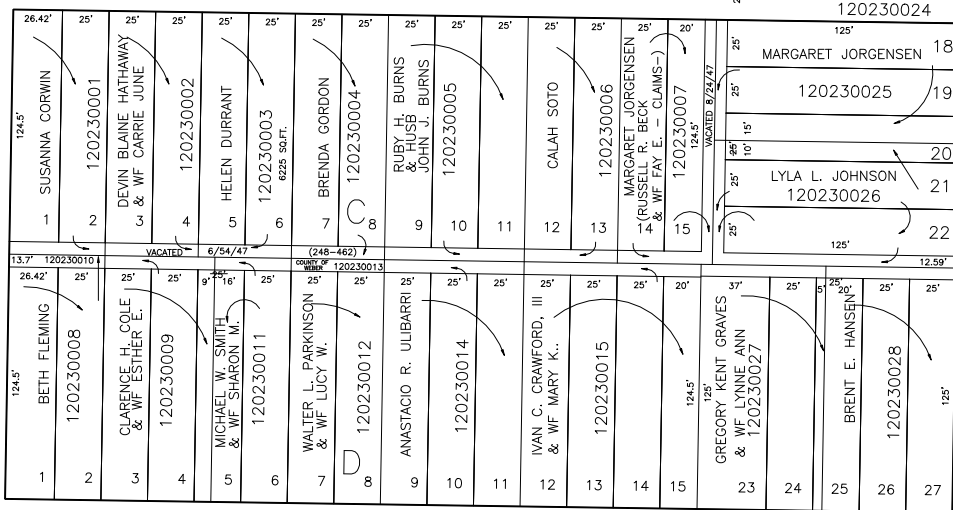 120230024
26.42'
25'
25'
25'
25'
25'
25'
25'
25'
25'
25'
25'
25'
25'
20'
124.5'
SUSANNA CORWIN
120230001
DEVIN BLAINE HATHAWAY
& WF CARRIE JUNE
120230002
HELEN DURRANT
120230003
6225 SQ.FT.
BRENDA GORDON
120230004
RUBY H. BURNS
& HUSB
JOHN J. BURNS
120230005
CALAH SOTO
120230006
MARGARET JORGENSEN
(RUSSELL R. BECK
& WF FAY E. - CLAIMS-)
120230007
124.5'
VACATED 8/24/47
C
1
2
3
4
5
6
7
8
9
10
11
12
13
14
15
125'
25'
MARGARET JORGENSEN
18
25'
120230025
19
15'
25'
10'
20
25'
LYLA L. JOHNSON
21
120230026
25'
22
125'
VACATED
6/54/47
(248-462)
13.7'
120230010
COUNTY OF
WEBER
120230013
12.59'
26.42'
25'
25'
25'
9'
25'
16'
25'
25'
25'
25'
25'
25'
25'
25'
25'
20'
37'
25'
5'
25'
20'
25'
25'
124.5'
BETH FLEMING
120230008
CLARENCE H. COLE
& WF ESTHER E.
120230009
MICHAEL W. SMITH
& WF SHARON M.
120230011
WALTER L. PARKINSON
& WF LUCY W.
120230012
ANASTACIO R. ULIBARRI
120230014
IVAN C. CRAWFORD, III
& WF MARY K..
120230015
124.5'
125'
GREGORY KENT GRAVES
& WF LYNNE ANN
120230027
BRENT E. HANSEN
120230028
125'
D
1
2
3
4
5
6
7
8
9
10
11
12
13
14
15
23
24
25
26
27